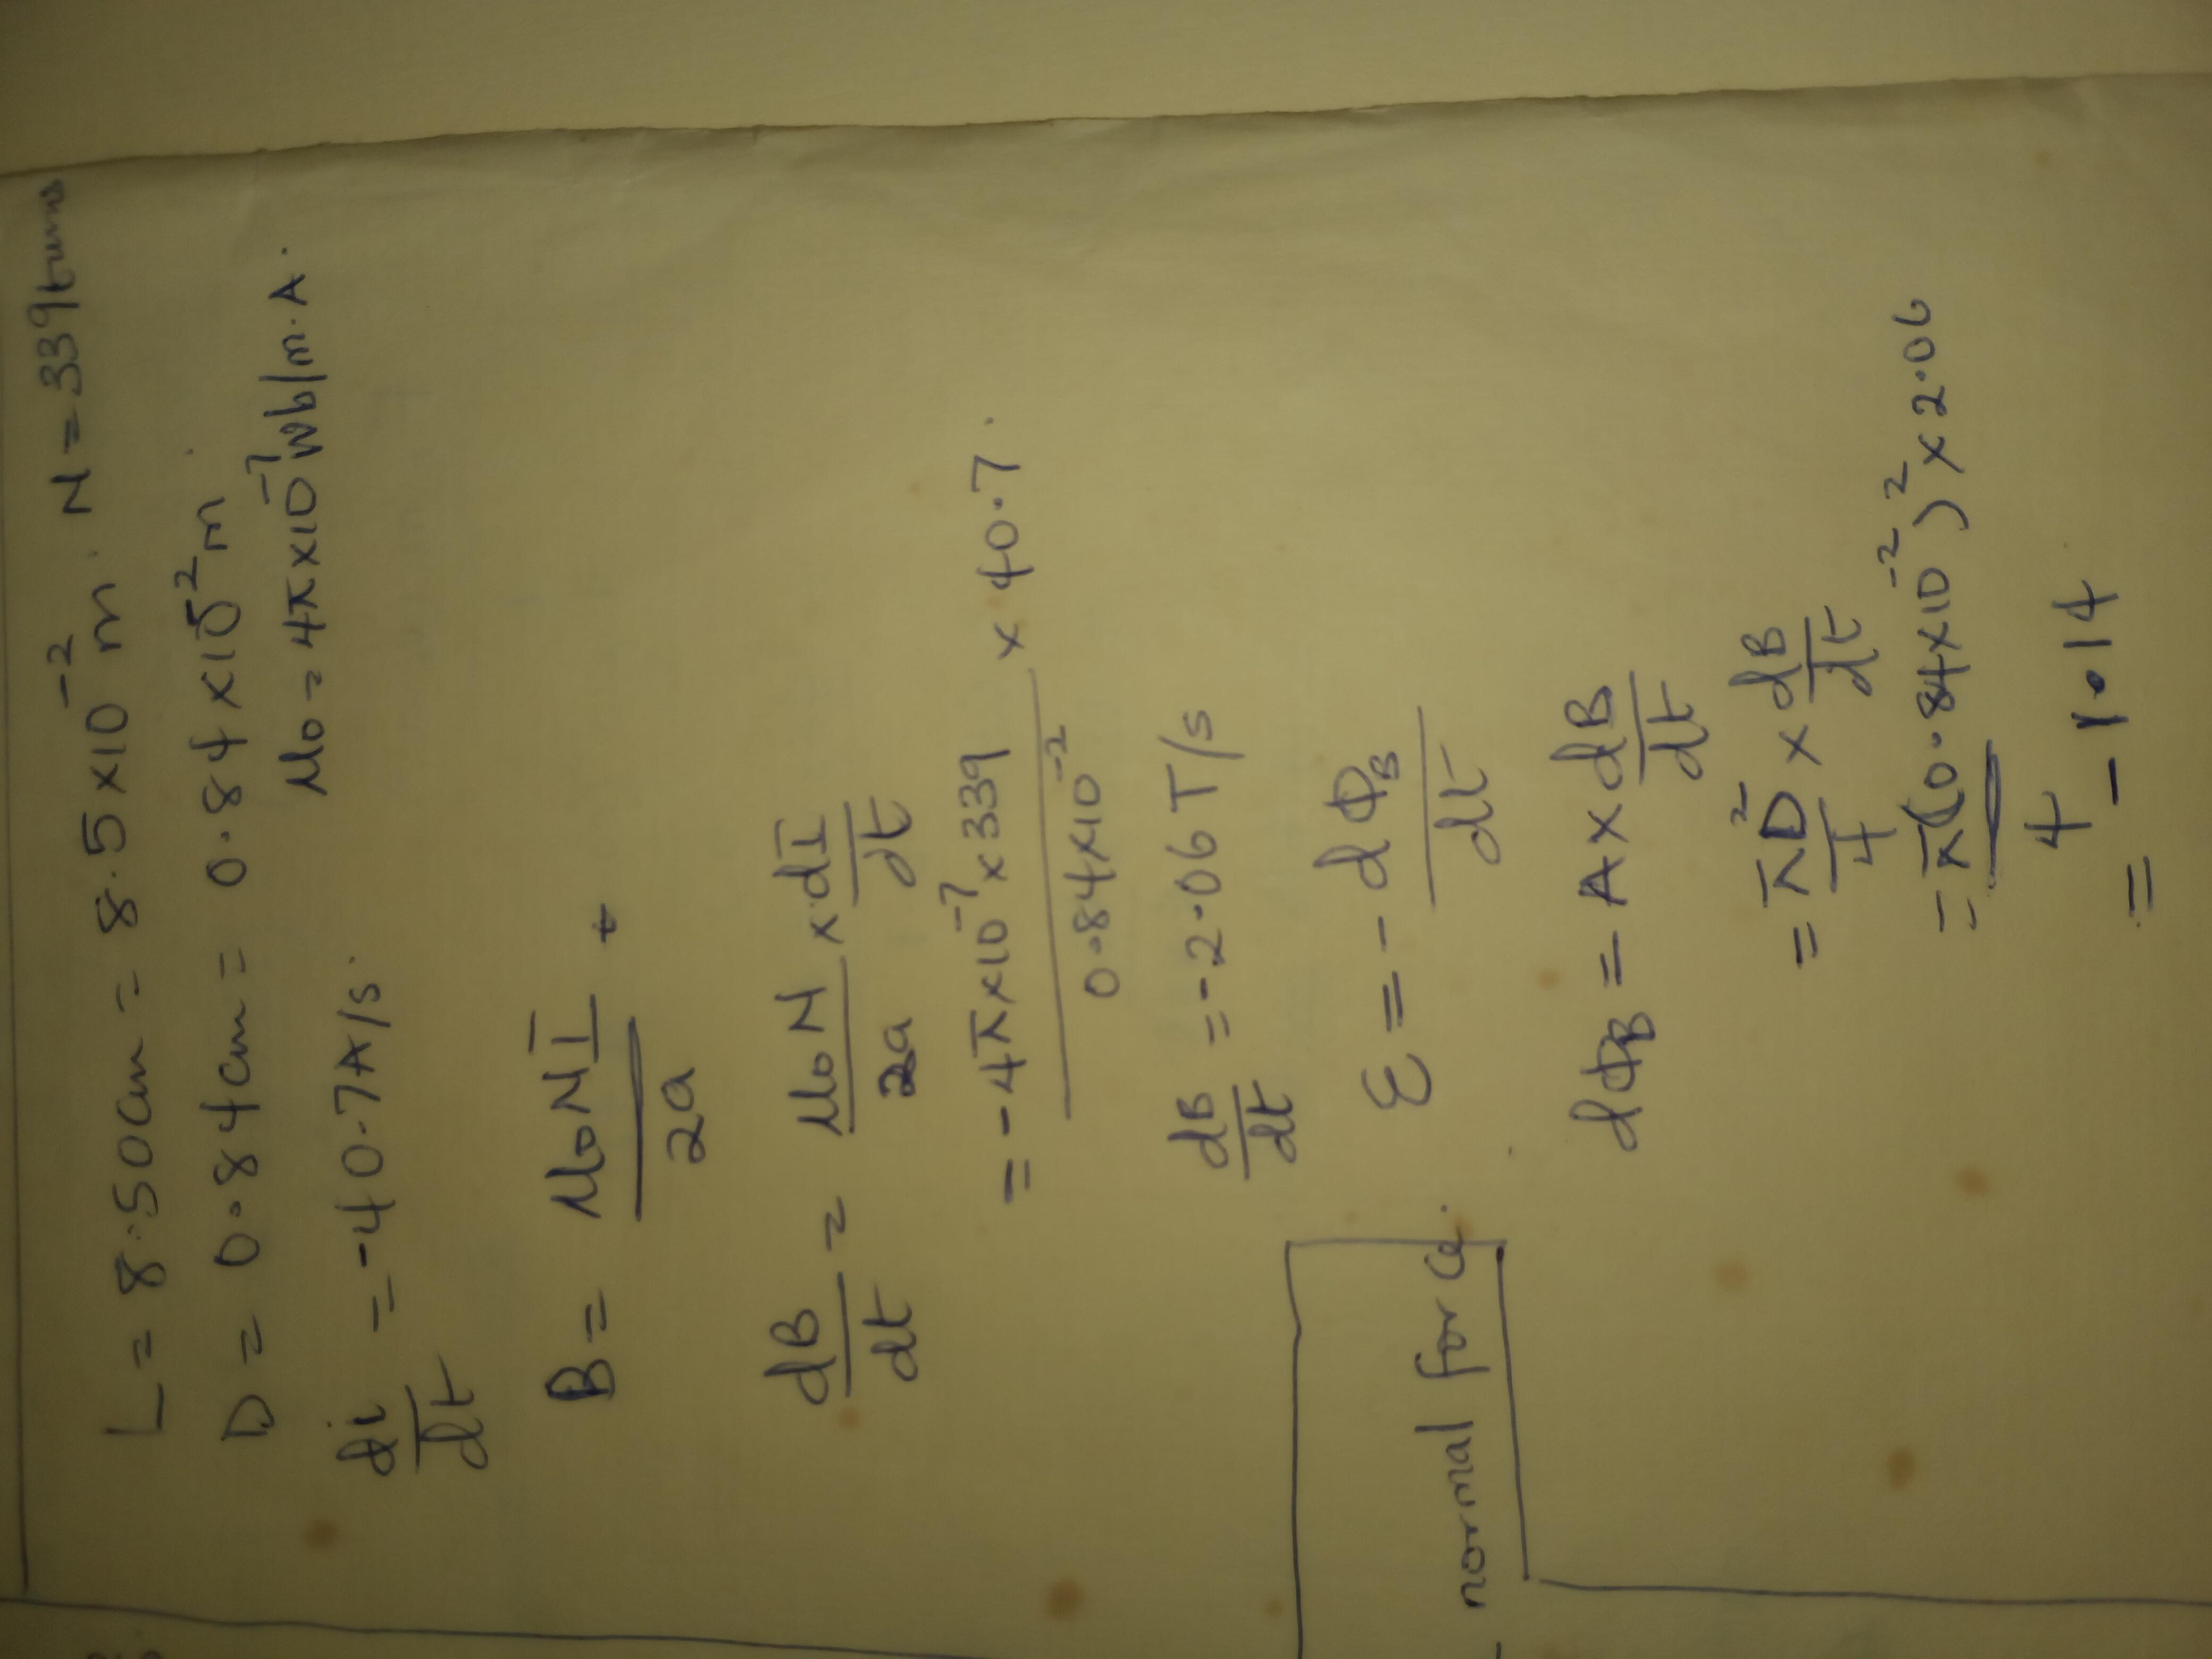 L = 8.50cm = 8.5×10⁻² m. N = 339 turns
D = 0.84cm = 0.84×10⁻² m
μ₀ = 4π×10⁻⁷ Wb/m.A.
di/dt = -40.7A/s.
B = μ₀NI/2a
dB/dt = μ₀N/2a × dI/dt
= -4π×10⁻⁷×339/0.84×10⁻² × 40.7.
dB/dt = -2.06 T/s
ε = - dΦB/dt
dΦB = A × dB/dt
= πD²/4 × dB/dt
= π(0.84×10⁻²)²/4 × 2.06
= -1.14
- normal force.